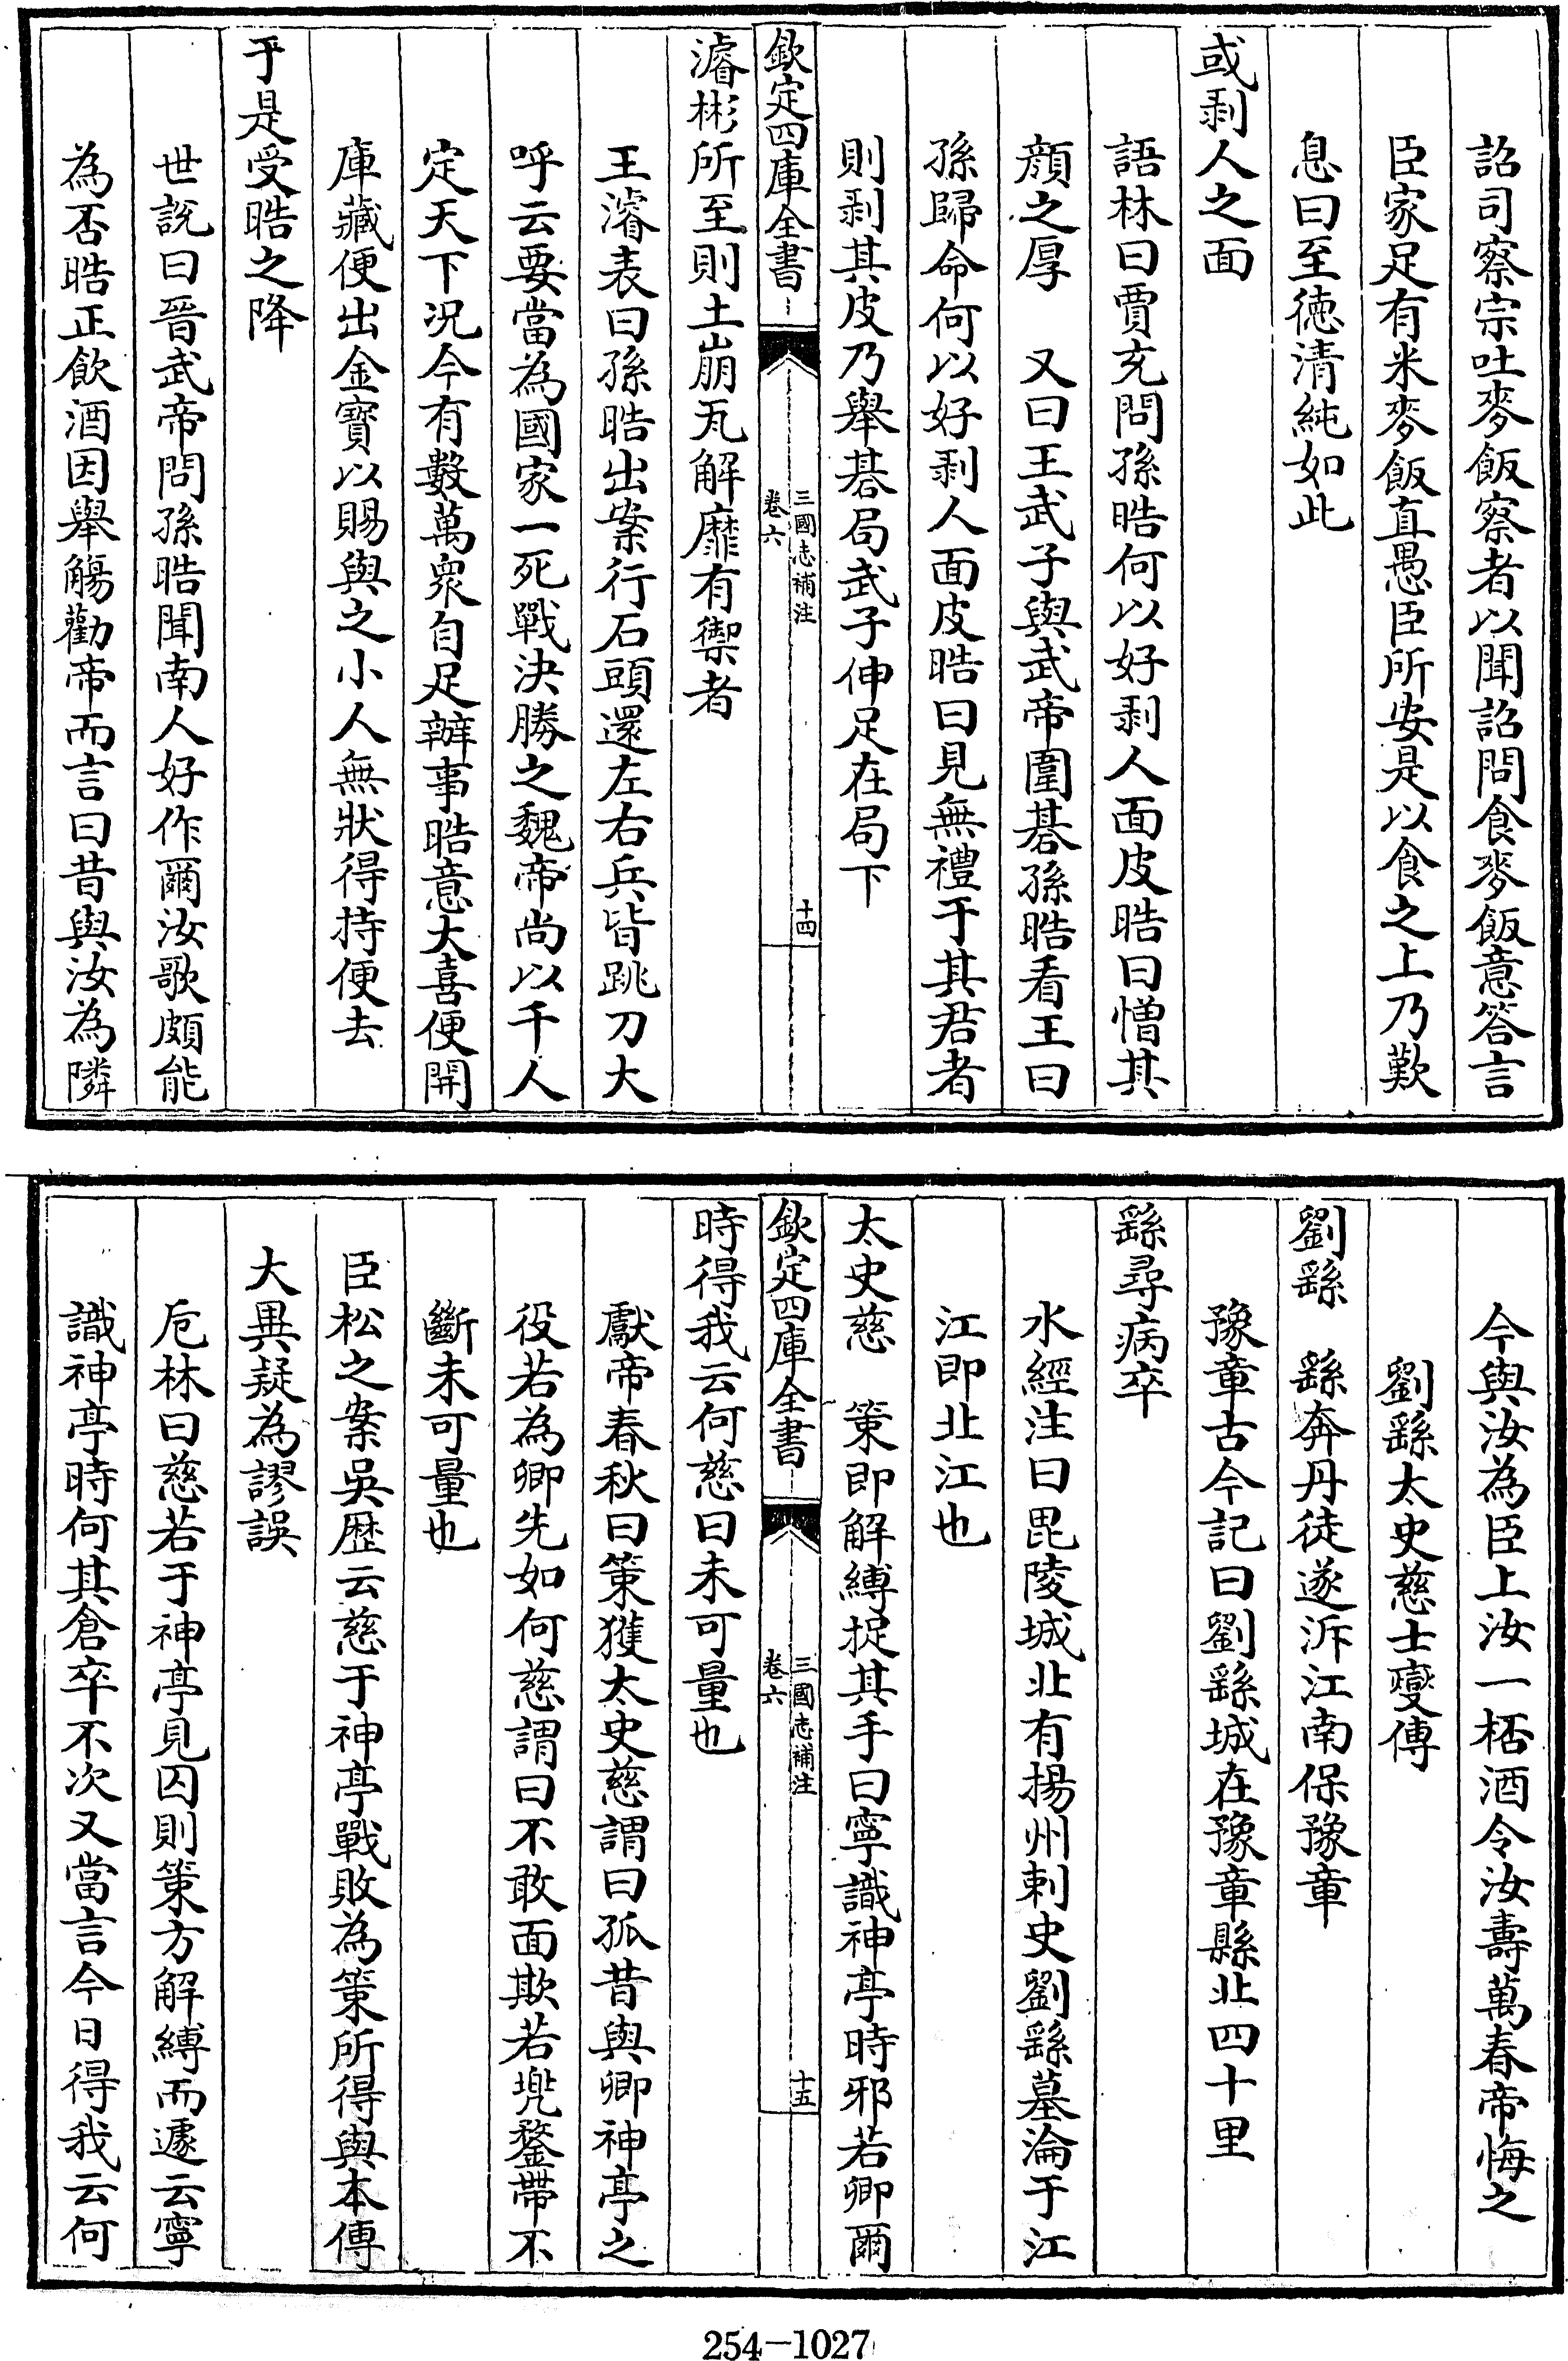 詔司察宗吐麥飯察者以聞詔問食麥飯意答言
臣家足有米麥飯直愚臣所安是以食之上乃歎
息曰至徳清純如此
或剥人之面
語林曰賈充問孫晧何以好剥人面皮晧曰憎其
顔之厚　又曰王武子與武帝圍碁孫晧看王曰
孫歸命何以好剥人面皮晧曰見無禮于其君者
則剥其皮乃舉碁局武子伸足在局下
欽定四庫全書
三國志補注
卷六
十四
濬彬所至則土崩瓦解靡有禦者
王濬表曰孫晧出案行石頭還左右兵皆跳刀大
呼云要當為國家一死戰決勝之魏帝尚以千人
定天下况今有數萬衆自足辦事晧意大喜便開
庫藏便出金寳以賜與之小人無狀得持便去
于是受晧之降
世説曰晉武帝問孫晧聞南人好作爾汝歌頗能
為否晧正飲酒因舉觴勸帝而言曰昔與汝為隣
今與汝為臣上汝一桮酒令汝壽萬春帝悔之
劉繇太史慈士燮傳
劉繇　繇奔丹徒遂泝江南保豫章
豫章古今記曰劉繇城在豫章縣北四十里
繇尋病卒
水經注曰毘陵城北有揚州刺史劉繇墓淪于江
江即北江也
太史慈　策即解縛捉其手曰寧識神亭時邪若卿爾
欽定四庫全書
三國志補注
卷六
十五
時得我云何慈曰未可量也
獻帝春秋曰策獲太史慈謂曰孤昔與卿神亭之
役若為卿先如何慈謂曰不敢面欺若兠鍪帶不
斷未可量也
臣松之案吳歴云慈于神亭戰敗為策所得與本傳
大異疑為謬誤
卮林曰慈若于神亭見囚則策方解縛而遽云寧
識神亭時何其倉卒不次又當言今日得我云何
254-1027